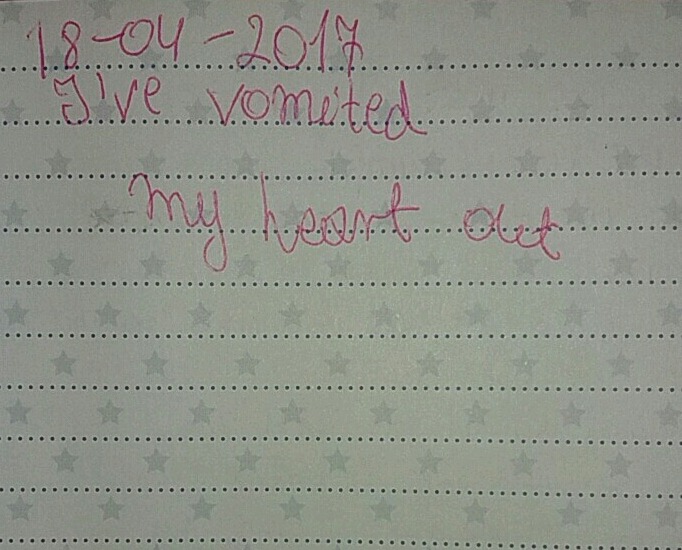 18-04-2017
I've vomited
my heart out